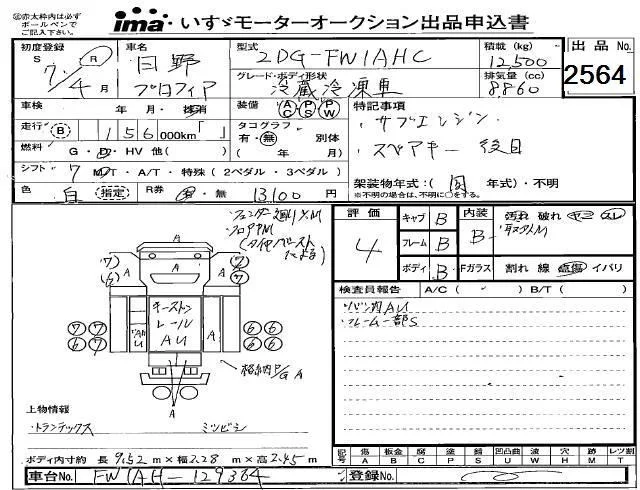 ※赤太枠内は必ず
ボールペンで
ご記入下さい
ima いすゞモーターオークション出品申込書
初度登録 S R 7年 4月
車名 日野 プロフィア
型式 2DG-FW1AHC
積載 (kg) 12,500
出品 No. 2564
グレード・ボディ形状 冷蔵冷凍車
排気量 (cc) 8,860
車検 年・月・抹消
装備 AC PS PW
特記事項
・サブエンジン・
・スペアキー 後日
走行 B 156 000km「 」
タコグラフ 有・無 別体 ( 年 月)
燃料 G・D・HV 他( )
シフト 7 MT・A/T・特殊 (2ペダル・3ペダル)
架装物年式:( 同 年式)・不明
※不明の場合は、不明に〇をする。
色 白 指定
R券 有・無 13,100 円
フェンダー廻リ
評価 4
キャブ B
フレーム B
ボディ B
内装 B
汚れ 破れ ヤニ スレ
Fガラス 割れ 線 点傷 イバリ
検査員報告 A/C ( ) B/T ( )
リバン内AU
フレーム一部S
A
A A
7 6 7 6
キーストン
レール
AU
7 7 6 6
7 7 6 6
格納P/G A
A
上物情報
・トランテックス ミツビシ
ボディ内寸約 長 9.52 m×幅 2.28 m×高 2.45 m
記号 傷 A 板金 B 腐 C 塗 P 錆 S 凹凸曲 U 波 W 穴 H 跡 M レツ割 T
車台No. FW1AH-129364
登録No.